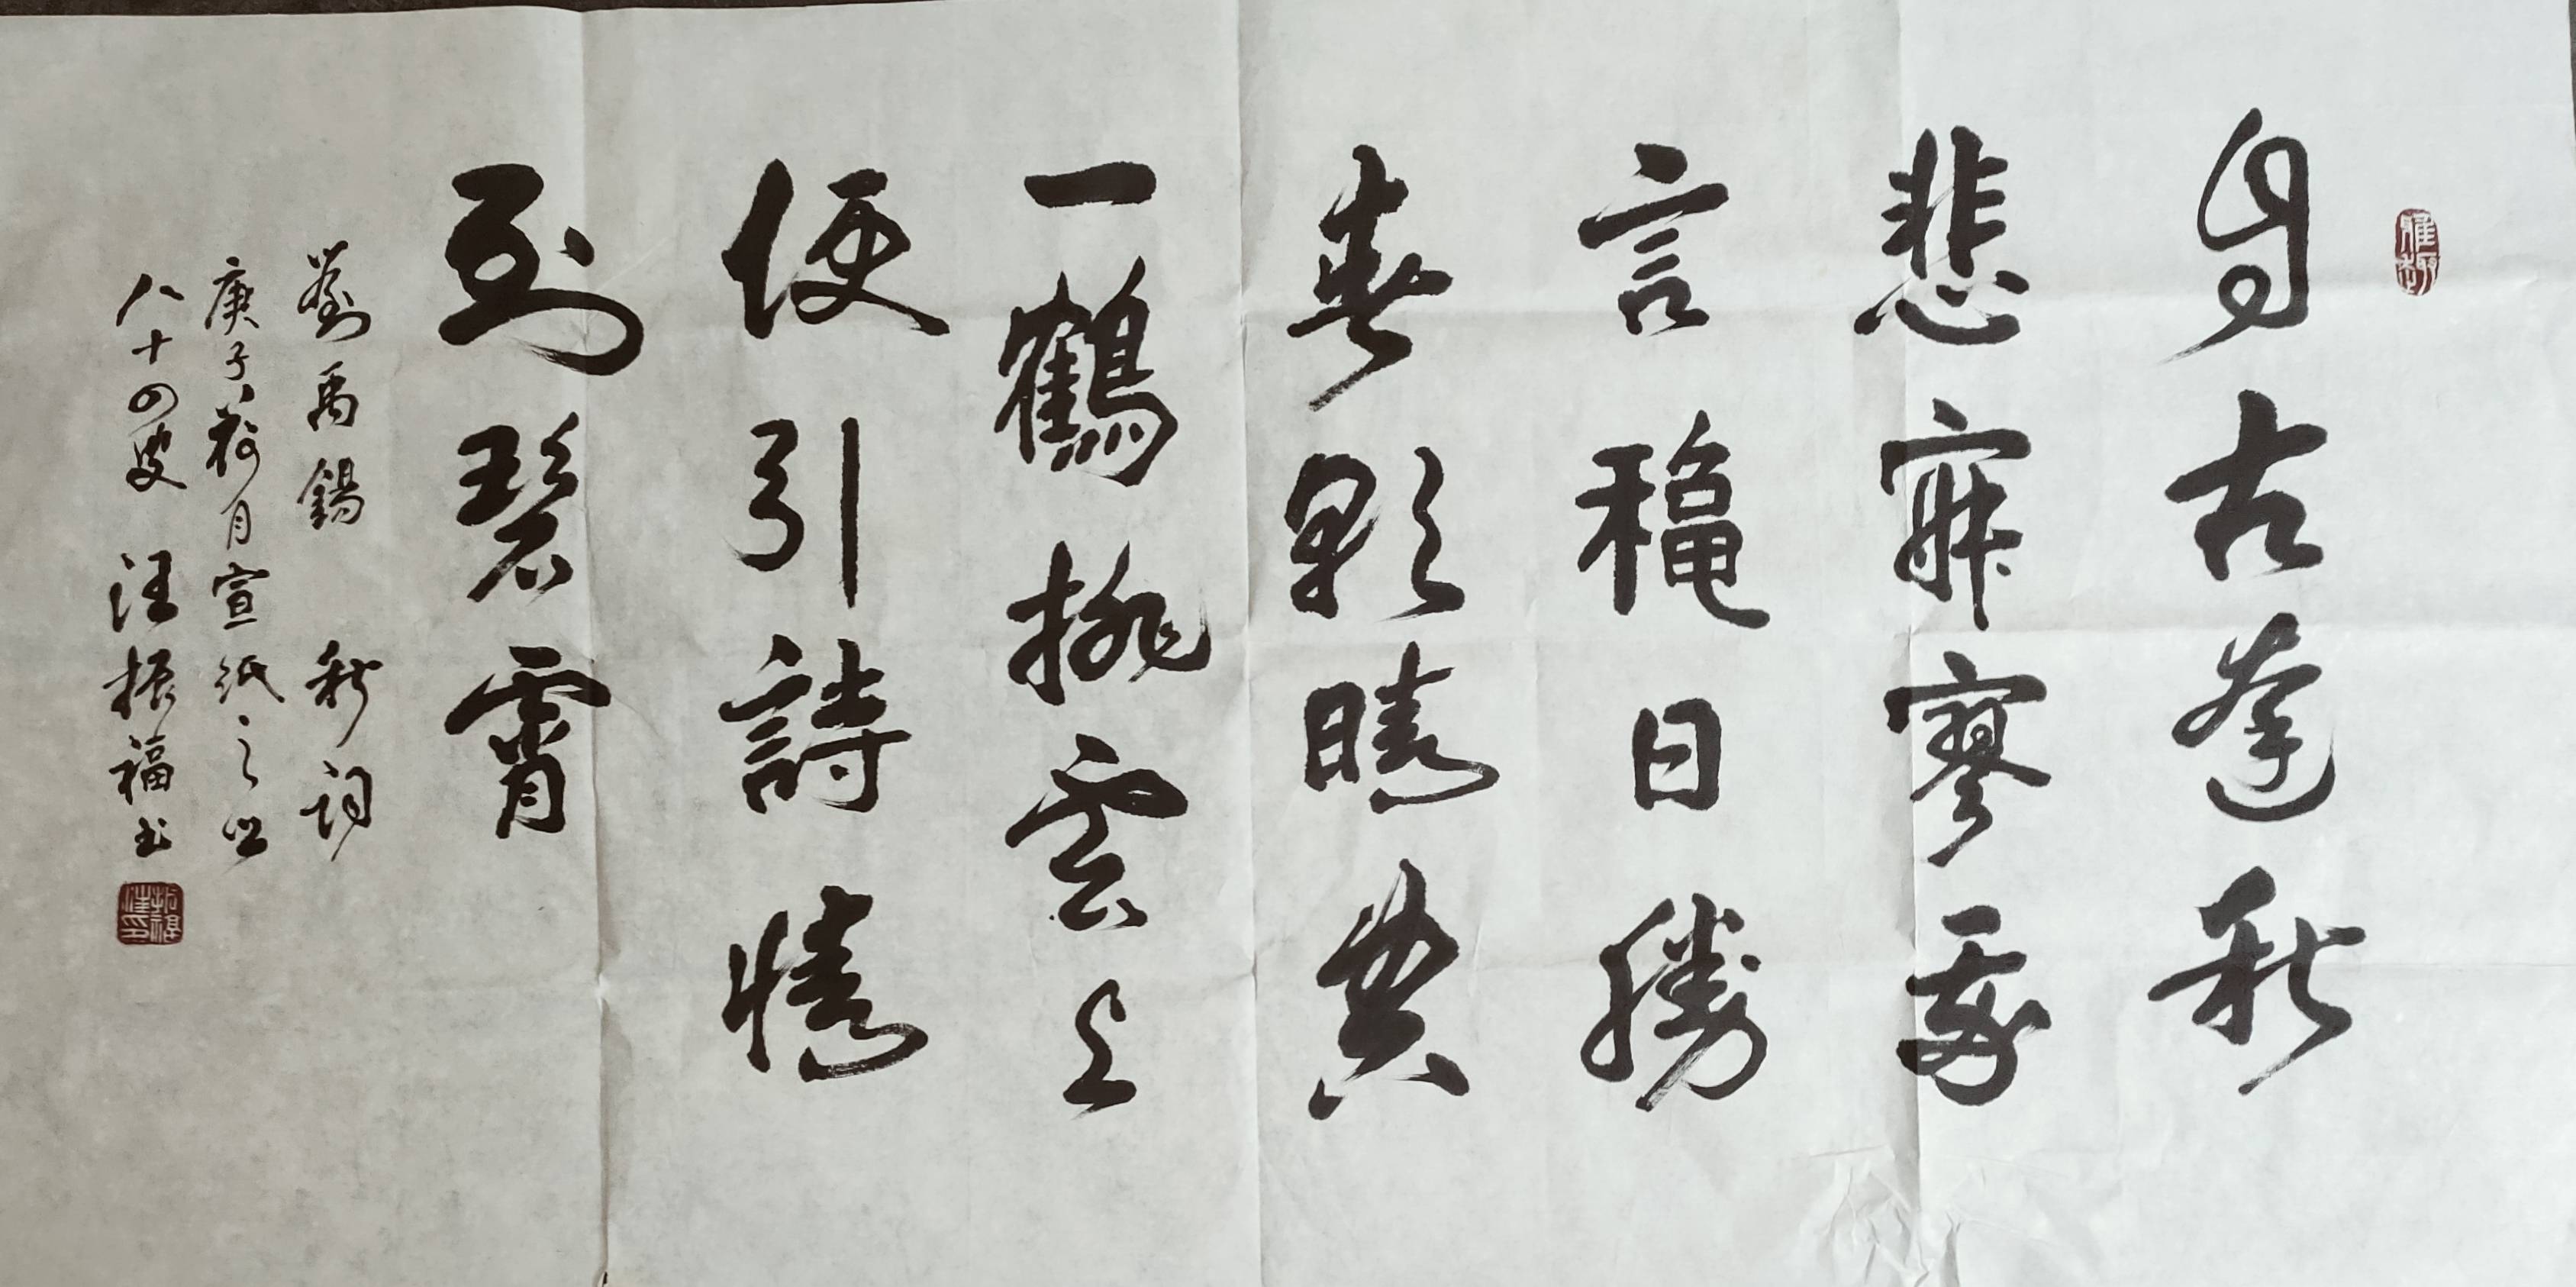 自古逢秋
悲寂寥我
言龝日勝
春朝晴空
一鶴排雲上
便引詩情
到碧霄
劉禹錫 秋詞
庚子荷月宣紙之鄉
八十四叟 汪振福书